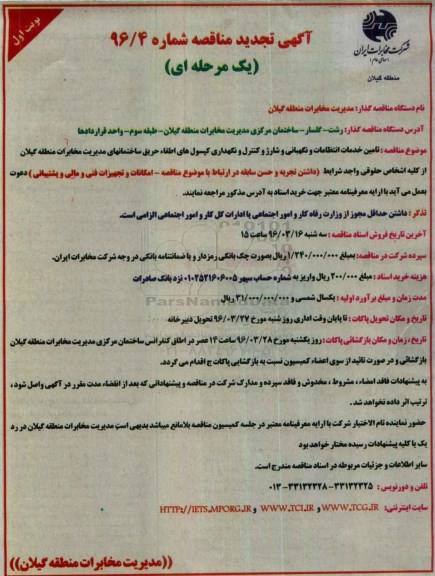 نوبت اول
شرکت مخابرات ایران
(سهامی عام)
منطقه گیلان
آگهی تجدید مناقصه شماره ۹۶/۴
(یک مرحله ای)
نام دستگاه مناقصه گذار: مدیریت مخابرات منطقه گیلان
آدرس دستگاه مناقصه گذار: رشت - گلسار - ساختمان مرکزی مدیریت مخابرات منطقه گیلان - طبقه سوم - واحد قراردادها
موضوع مناقصه: تامین خدمات انتظامات و نگهبانی و شارژ و کنترل و نگهداری کپسول های اطفاء حریق ساختمانهای مدیریت مخابرات منطقه گیلان
از کلیه اشخاص حقوقی واجد شرایط (داشتن تجربه و حسن سابقه در ارتباط با موضوع مناقصه - امکانات و تجهیزات فنی و مالی و پشتیبانی) دعوت
بعمل می آید با ارایه معرفینامه معتبر جهت خرید اسناد به آدرس مذکور مراجعه نمایند.
تذکر: داشتن حداقل مجوز از وزارت رفاه کار و امور اجتماعی یا ادارات کل کار و امور اجتماعی الزامی است.
آخرین تاریخ فروش اسناد مناقصه: سه شنبه ۹۶/۰۳/۱۶ ساعت ۱۵
سپرده شرکت در مناقصه: بمبلغ ۱/۲۴۰/۰۰۰/۰۰۰ ریال بصورت چک بانکی رمزدار و یا ضمانتنامه بانکی در وجه شرکت مخابرات ایران.
هزینه خرید اسناد: مبلغ ۲۰۰/۰۰۰ ریال واریز به شماره حساب سپهر ۰۱۰۲۵۲۱۶۰۶۰۰۵ نزد بانک صادرات
مدت زمان و مبلغ برآورد اولیه: یکسال شمسی و ۳۱/۰۰۰/۰۰۰/۰۰۰ ریال
تاریخ و مکان تحویل پاکات: تا پایان وقت اداری روز شنبه مورخ ۹۶/۰۳/۲۷ تحویل دبیرخانه
تاریخ، زمان و مکان بازگشائی پاکات: روز یکشنبه مورخ ۹۶/۰۳/۲۸ ساعت ۱۴ عصر در اطاق کنفرانس ساختمان مرکزی مدیریت مخابرات منطقه گیلان
بازگشائی و در صورت تائید از سوی اعضاء کمیسیون نسبت به بازگشایی پاکات ج اقدام می گردد.
به پیشنهادات فاقد امضاء، مشروط، مخدوش و فاقد سپرده و مدارک شرکت در مناقصه و پیشنهاداتی که بعد از انقضاء مدت مقرر در آگهی واصل شود،
ترتیب اثر داده نخواهد شد.
حضور نماینده تام الاختیار شرکت با ارایه معرفینامه معتبر در جلسه کمیسیون مناقصه بلامانع میباشد بدیهی است مدیریت مخابرات منطقه گیلان در رد
یک یا کلیه پیشنهادات رسیده مختار خواهد بود
سایر اطلاعات و جزئیات مربوطه در اسناد مناقصه مندرج است.
تلفن و دورنویس: ۳۳۱۳۲۳۲۵ - ۳۳۱۳۲۳۲۸ - ۰۱۳
سایت اینترنتی: WWW.TCG.IR و WWW.TCI.IR و HTTP://IETS.MPORG.IR
((مدیریت مخابرات منطقه گیلان))